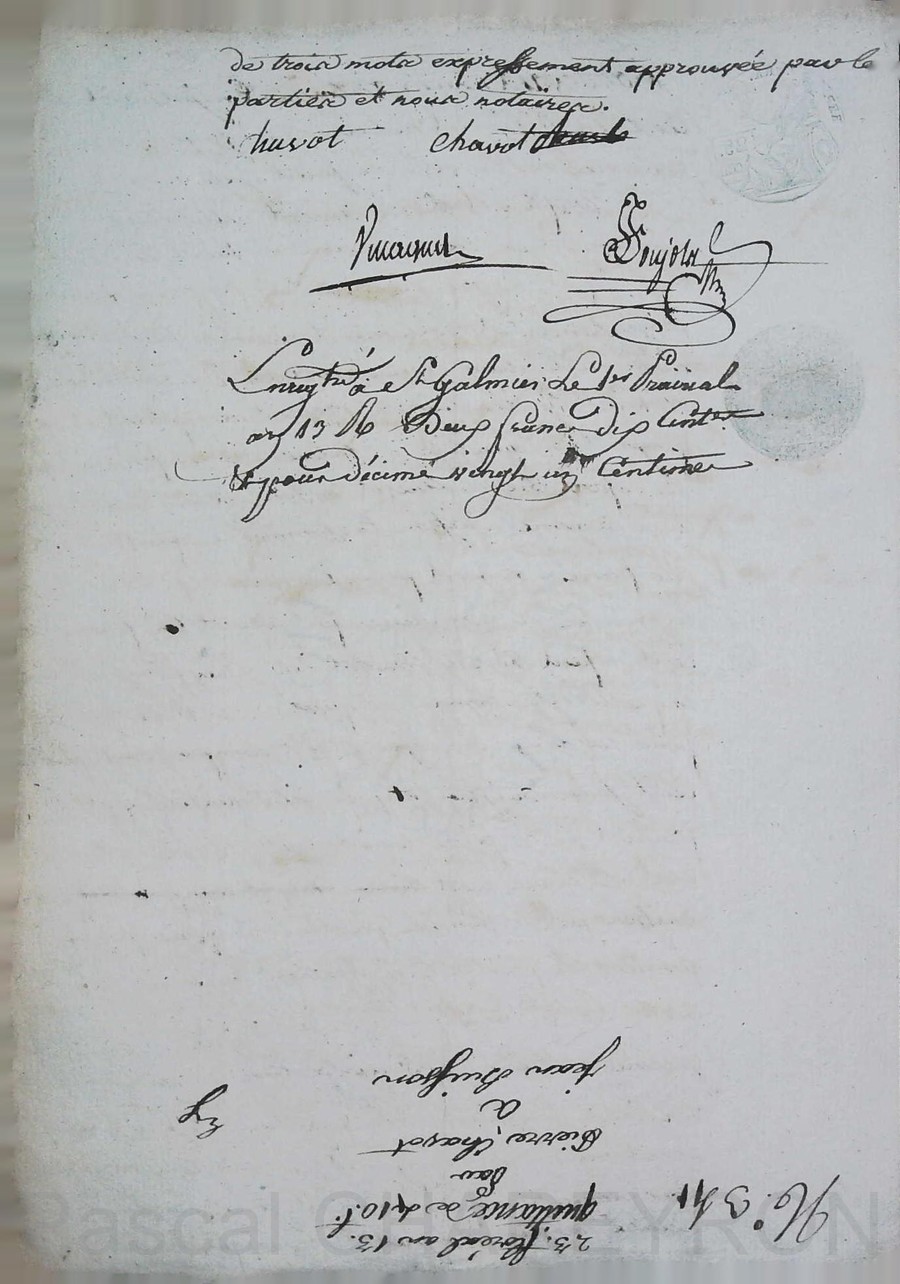 de trois mots expressement approuvée par le
parties et nous notaires.
chavot chavot
Enregtré à St Galmier Le 1er Prairial
an 13 R Deux francs dix Centes
& pour décime vingt un Centimes
N°. 341
23. floréal an 13.
quittance de 410 f.
par
Pierre Chavot
a
jean Buisson
Pascal CHAPEYRON